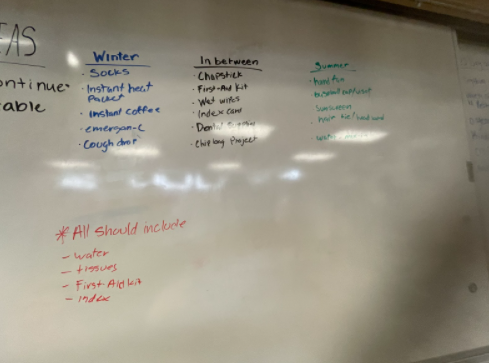 EAS
ontinue
able
Winter
· Socks
· Instant heat
Packet
· Instant coffee
· emergen-C
· Cough drop
In between
· Chapstick
· First-Aid Kit
· Wet wipes
· Index card
· Dental
· Chip bag Project
Summer
· hand fan
sunscreen
· hair tie/
water
* All should include
- water
- tissues
- First Aid kit
- index